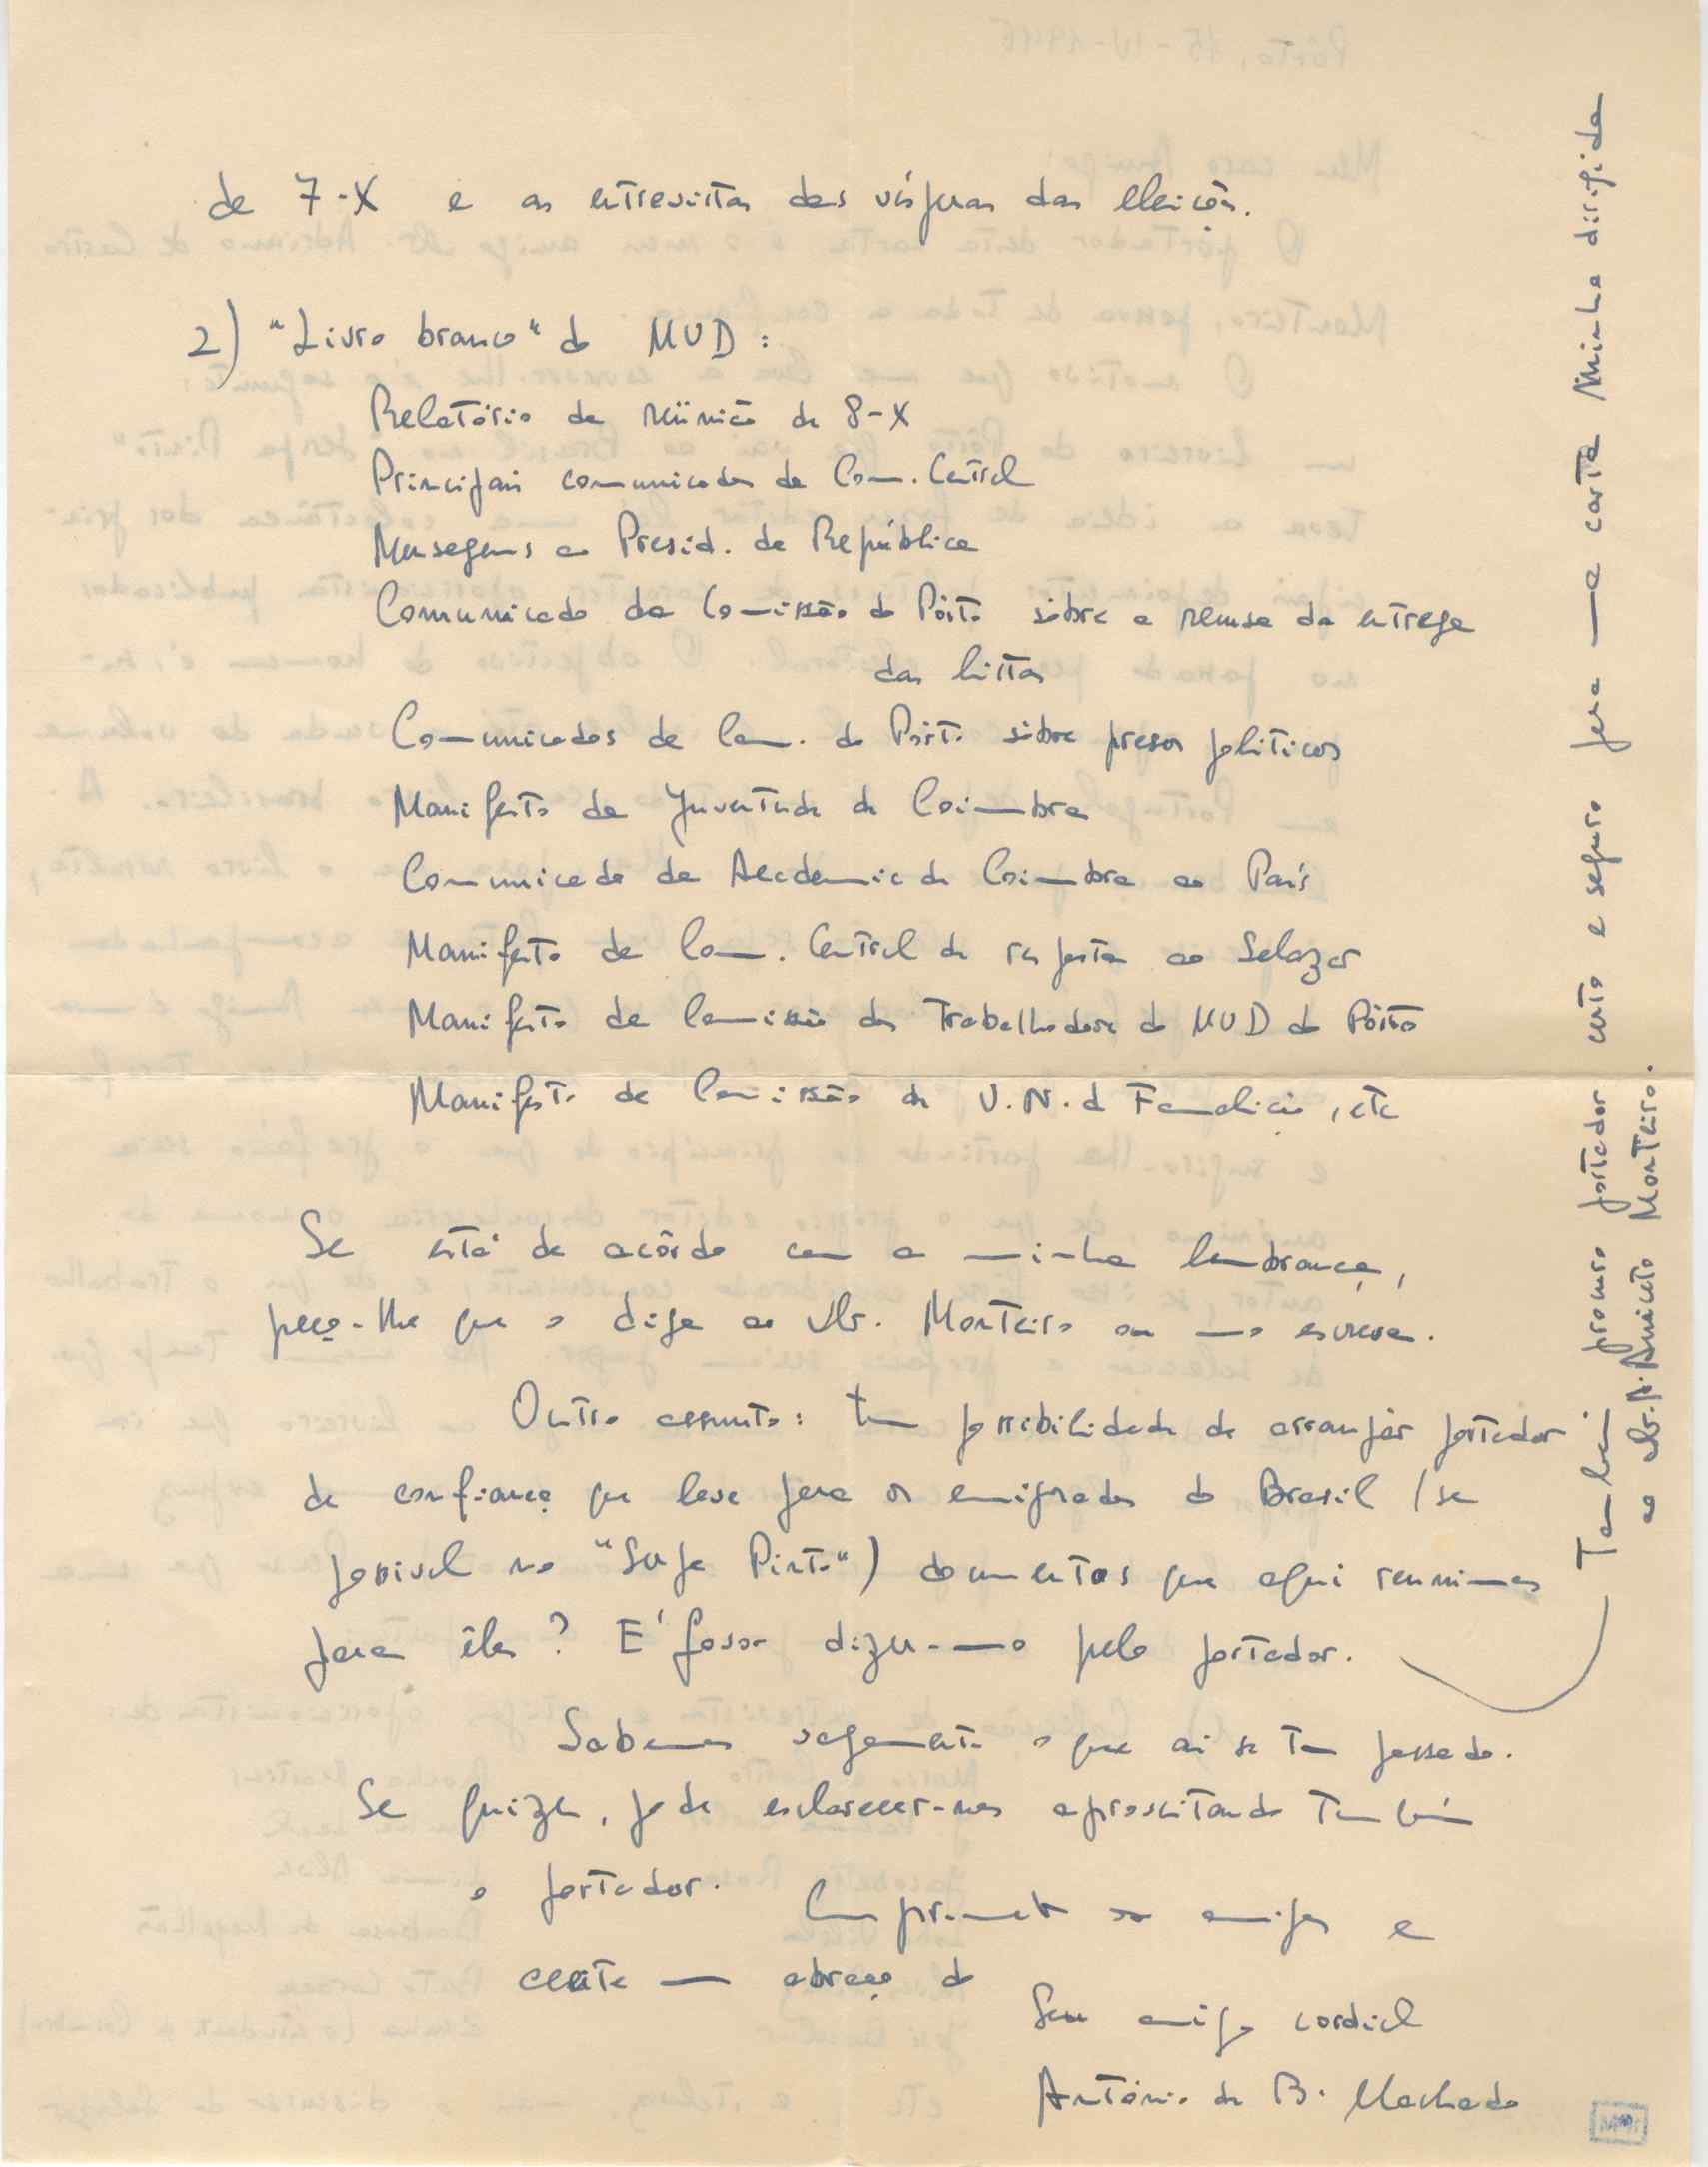 de 7-X e as entrevistas das vésperas das eleições.
2) "Livro branco" do MUD:
Relatório da reünião de 8-X
Principais comunicados da Com. Central
Mensagens ao Presid. da República
Comunicado da Comissão do Pôrto sôbre a recusa da entrega
das listas
Comunicados da Com. do Pôrto sôbre presos políticos
Manifesto da Juventude de Coimbra
Comunicado da Academia de Coimbra ao País
Manifesto da Com. Central de resposta ao Salazar
Manifesto da Comissão dos Trabalhadores do MUD do Pôrto
Manifesto da Comissão de V. N. de Famalicão, etc
Se está de acôrdo com a minha lembrança,
peço-lhe que o diga ao Dr. Monteiro ou mo escreva.
Outro assunto: tem possibilidade de arranjar portador
de confiança que leve para os emigrados do Brasil (se
possivel no "Serpa Pinto") documentos que aqui reunimos
para êles? É favor dizer-mo pelo portador.
Sabemos vagamente o que aí se tem passado.
Se quizer, pode esclarecer-nos aproveitando também
o portador. Cumprimente os amigos e
aceite um abraço do
Seu amigo cordial
António de B. Machado
Também procuro portador certo e seguro para uma carta minha dirigida
ao Dr. Aniceto Monteiro.